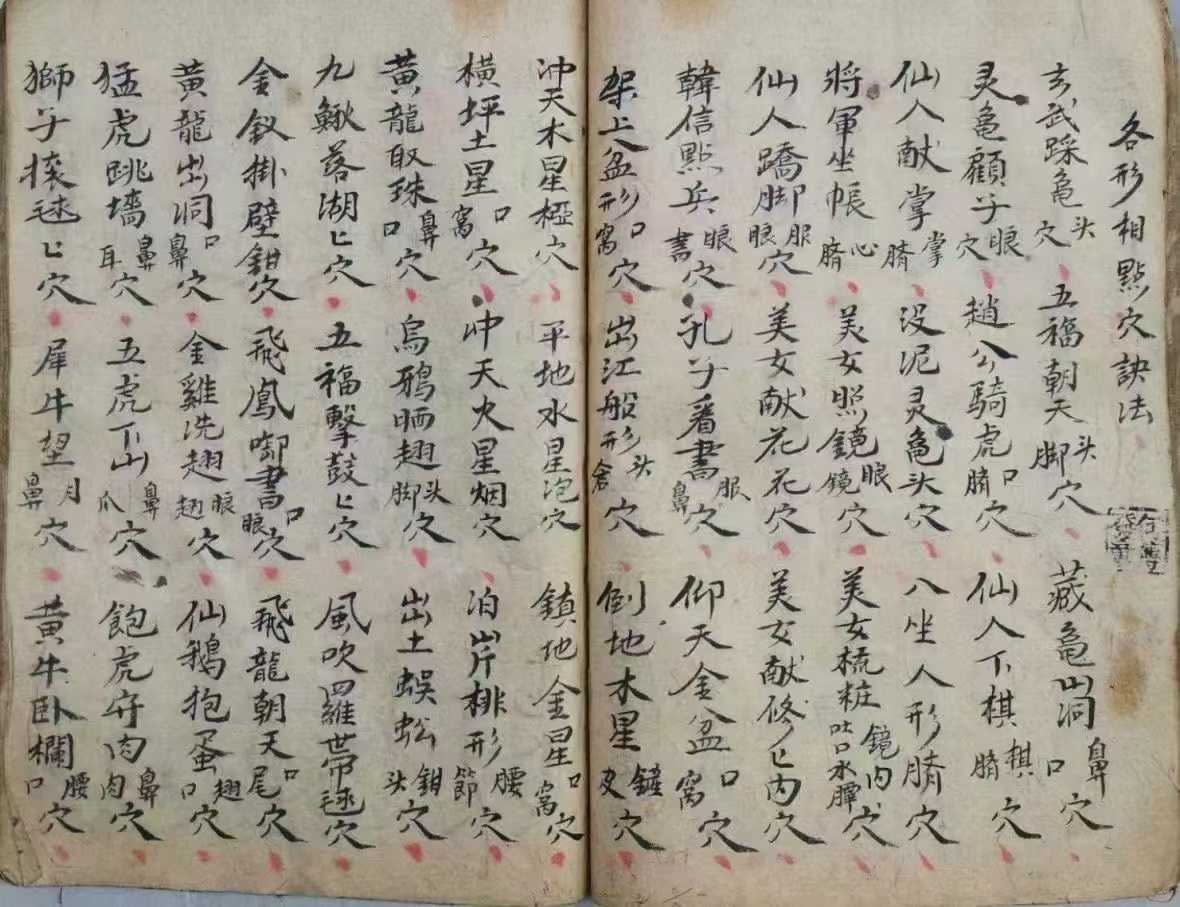 各形相點穴訣法
玄武踩龟头穴 五福朝天头脚穴 藏龟山洞鼻口穴
灵龟顧子眼穴 趙公騎虎口臍穴 仙人下棋棋臍穴
仙人献掌掌臍 没泥灵龟头穴 八坐人形臍穴
將軍坐帳心臍 美女照鏡眼鏡穴 美女梳粧鏡内吐口水潭穴
仙人蹻脚服眼穴 美女献花花穴 美女献修匕内穴
韓信點兵眼書穴 孔子看書服鼻穴 仰天金盆口窝穴
架上盆形口窝穴 出江船形头倉穴 倒地木星鏟皮穴
冲天木星椏穴 平地水星泡穴 鎮地金星口窝穴
横坪土星口窝穴 冲天火星烟穴 泊岸排形腰節穴
黄龍取珠鼻口穴 烏鴉晒翅头脚穴 出土蜈蚣鉗头穴
九鰍落湖匕穴 五福擊鼓匕穴 風吹羅帶毬穴
金釵掛壁鉗穴 飛鳳啣書口眼穴 飛龍朝天口尾穴
黄龍出洞口鼻穴 金雞洗翅眼翅穴 仙鵝抱蛋翅口穴
猛虎跳墻鼻耳穴 五虎下山鼻爪穴 飽虎守肉鼻肉穴
獅子捸毬匕穴 犀牛望月鼻穴 黄牛卧欄腰口穴